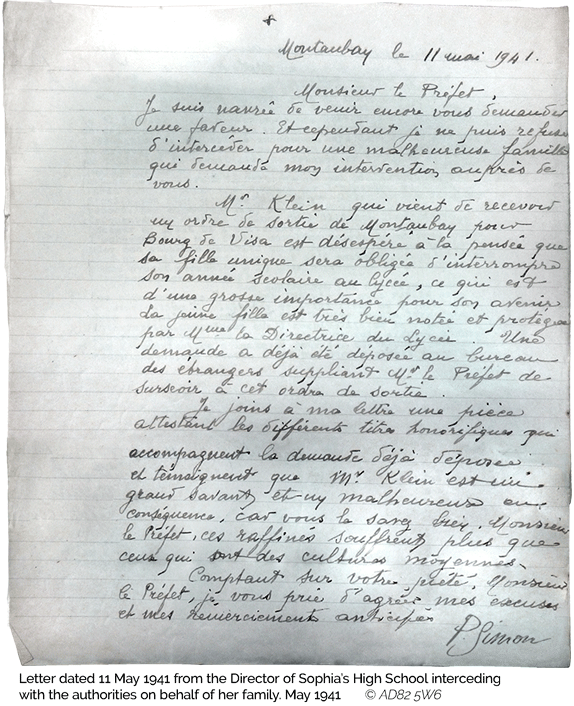 Montauban le 11 mai 1941.
Monsieur le Préfet,
Je suis navrée de venir encore vous demander
une faveur. Et cependant je ne puis refuser
d'intercéder pour une malheureuse famille
qui demande mon intervention auprès de
vous.
Mr Klein qui vient de recevoir
un ordre de sortie de Montauban pour
Bourg de Visa est désespéré à la pensée que
sa fille unique sera obligée d'interrompre
son année scolaire au lycée, ce qui est
d'une grosse importance pour son avenir
La jeune fille est très bien notée et protégée
par Mme la Directrice du Lycée. Une
demande a déjà été déposée au bureau
des étrangers suppliant Mr le Préfet de
surseoir à cet ordre de sortie.
Je joins à ma lettre une pièce
attestant les différents titres honorifiques qui
accompagnent la demande déjà déposée
et témoignent que Mr Klein est un
grand savant et un malheureux en
conséquence, car vous le savez bien, Monsieur
le Préfet, ces raffinés souffrent plus que
ceux qui ont des cultures moyennes.
Comptant sur votre piété, Monsieur
le Préfet, je vous prie d'agréer mes excuses
et mes remerciements anticipés
P. Simon
Letter dated 11 May 1941 from the Director of Sophia's High School interceding
with the authorities on behalf of her family. May 1941 © AD82 5W6